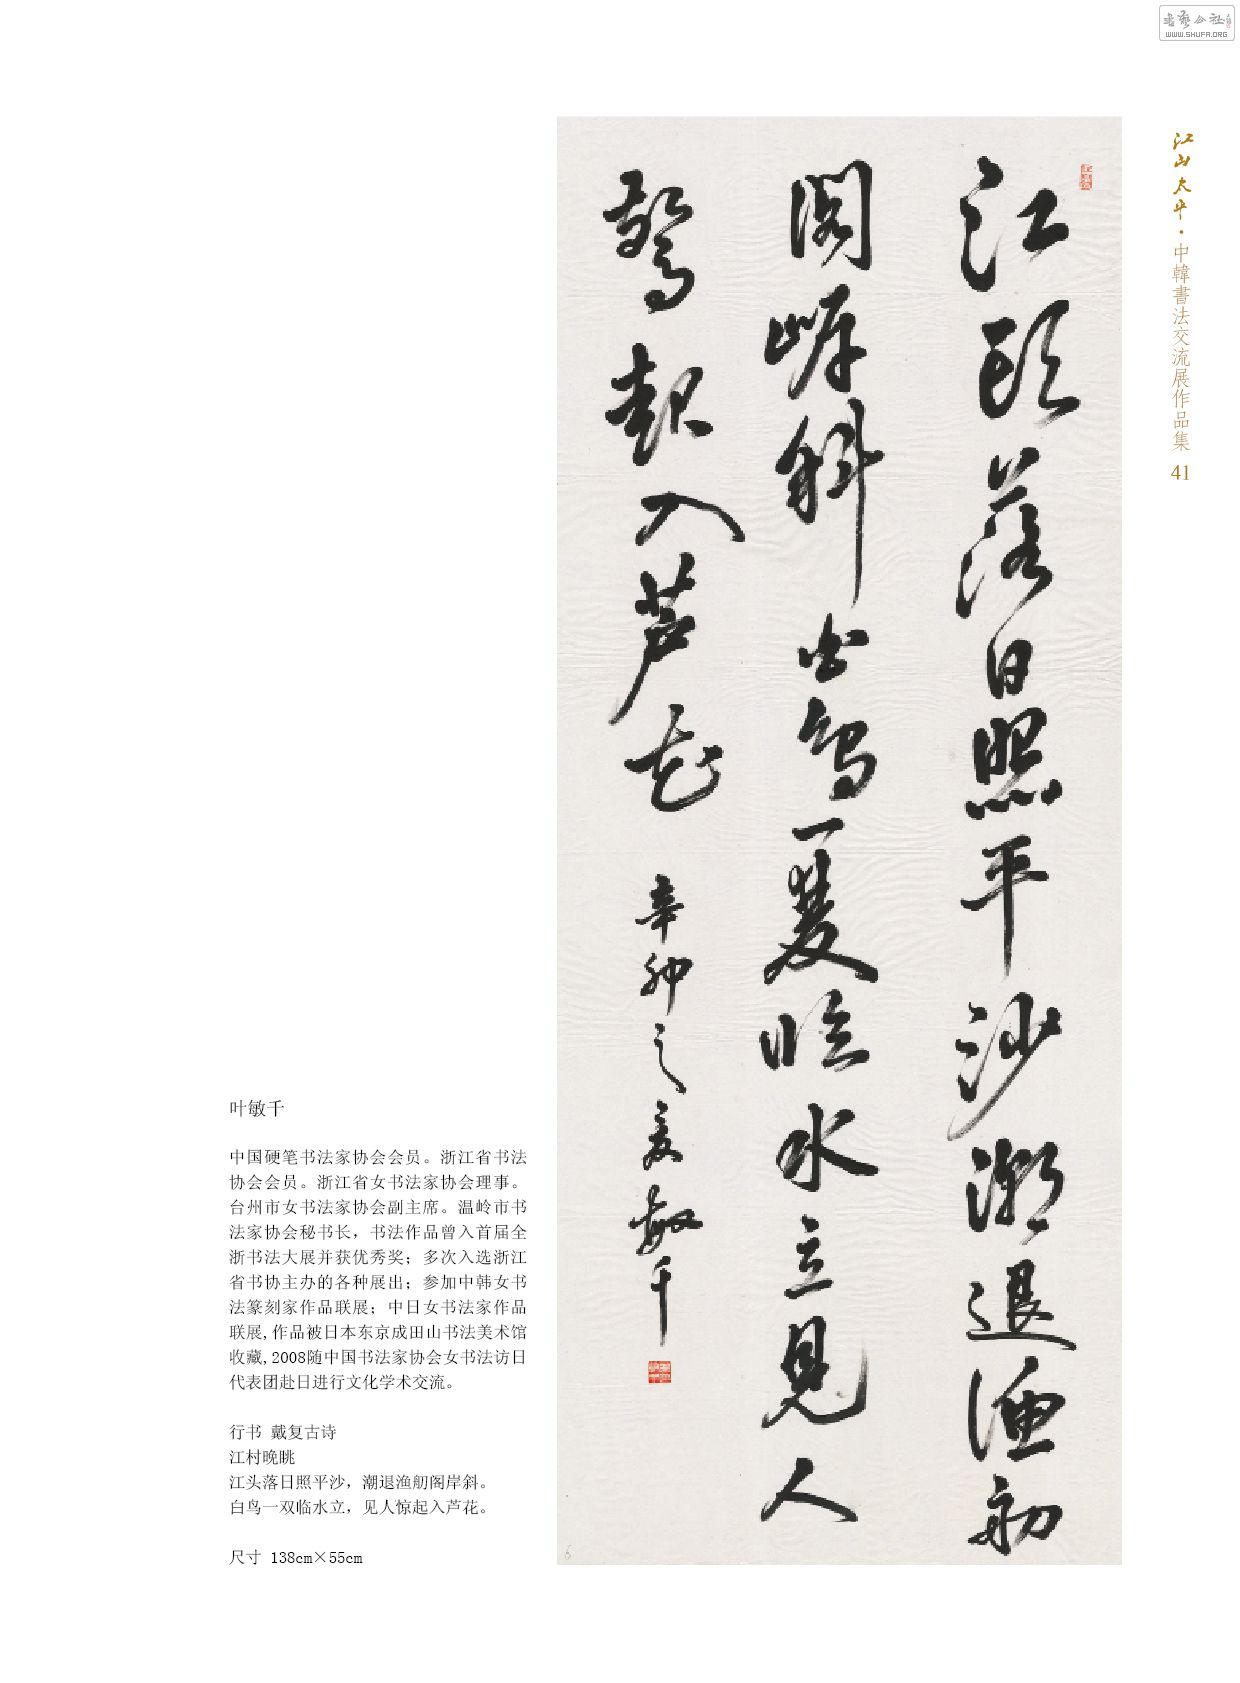 書藝公社
WWW.SHUFA.ORG
江山太平·中韓書法交流展作品集 41
江頭落日照平沙潮退漁舠
閣岸斜白鳥一雙臨水立見人
驚起入芦花
辛卯之夏敏千
叶敏千
中国硬笔书法家协会会员。浙江省书法
协会会员。浙江省女书法家协会理事。
台州市女书法家协会副主席。温岭市书
法家协会秘书长，书法作品曾入首届全
浙书法大展并获优秀奖；多次入选浙江
省书协主办的各种展出；参加中韩女书
法篆刻家作品联展；中日女书法家作品
联展,作品被日本东京成田山书法美术馆
收藏,2008随中国书法家协会女书法访日
代表团赴日进行文化学术交流。
行书 戴复古诗
江村晚眺
江头落日照平沙，潮退渔舠阁岸斜。
白鸟一双临水立，见人惊起入芦花。
尺寸 138cm×55cm